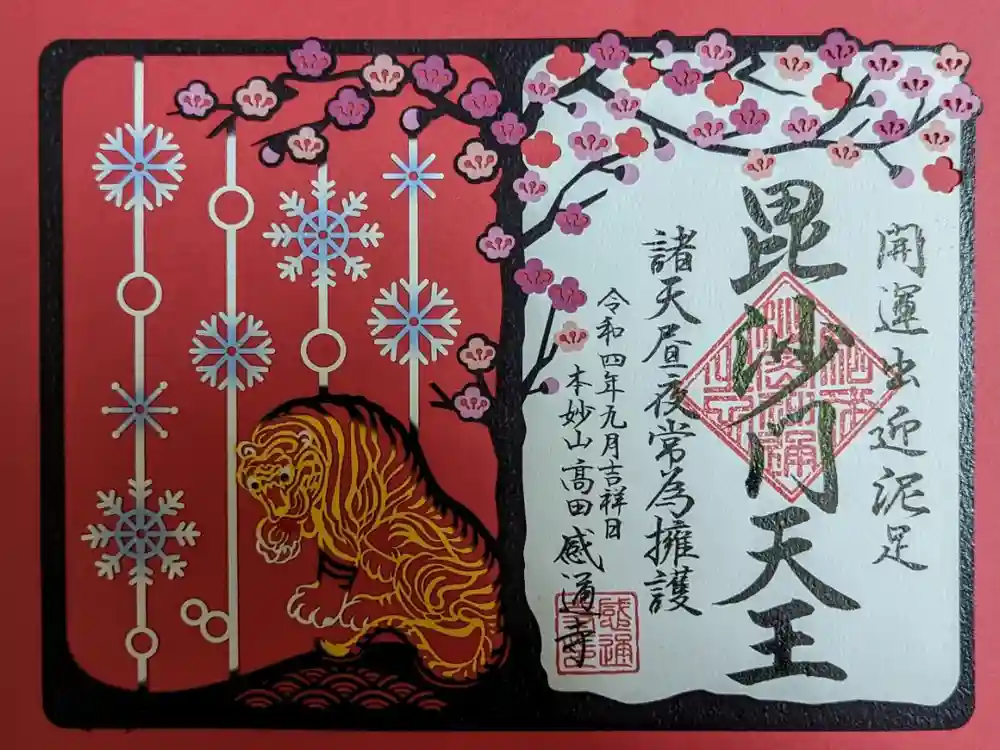 開運出近泥足
毘沙門天王
諸天昼夜常為擁護
令和四年九月吉祥日
本妙山高田感通寺
感通